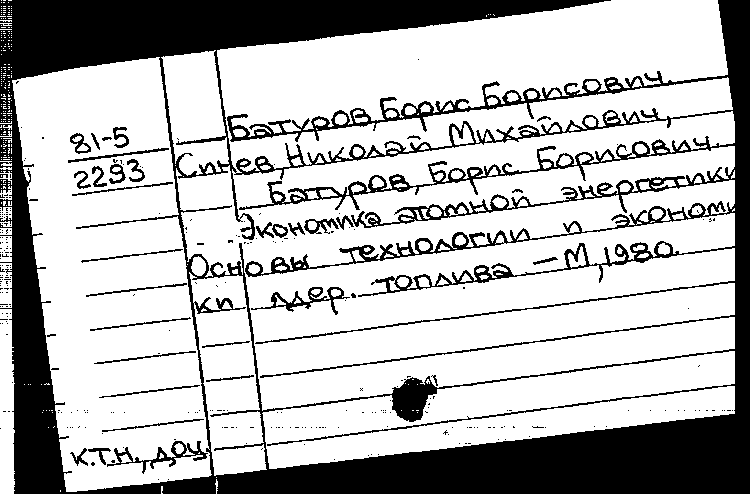 81-5
2293
Батуров, Борис Борисович.
Синев, Николай Михайлович,
Батуров, Борис Борисович.
Экономика атомной энергетики
Основы технологии и экономи
ки ядер. топлива — М, 1980.
к.т.н., доц.